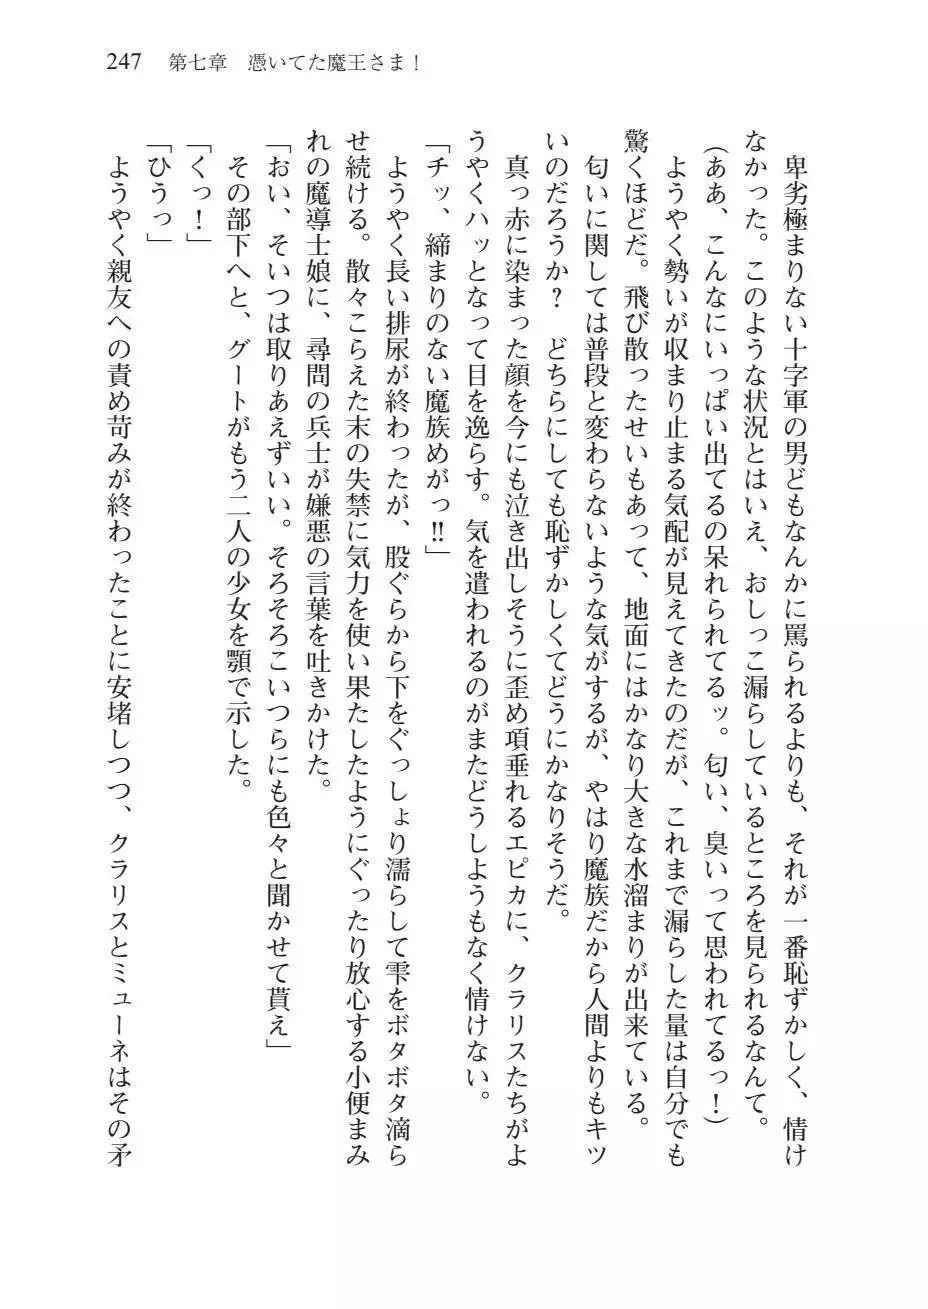 247 第七章 憑いてた魔王さま！
卑劣極まりない十字軍の男どもなんかに罵られるよりも、それが一番恥ずかしく、情け
なかった。このような状況とはいえ、おしっこ漏らしているところを見られるなんて。
（ああ、こんなにいっぱい出てるの呆れられてるッ。匂い、臭いって思われてるっ！）
ようやく勢いが収まり止まる気配が見えてきたのだが、これまで漏らした量は自分でも
驚くほどだ。飛び散ったせいもあって、地面にはかなり大きな水溜まりが出来ている。
匂いに関しては普段と変わらないような気がするが、やはり魔族だから人間よりもキツ
いのだろうか？　どちらにしても恥ずかしくてどうにかなりそうだ。
真っ赤に染まった顔を今にも泣き出しそうに歪め項垂れるエピカに、クラリスたちがよ
うやくハッとなって目を逸らす。気を遣われるのがまたどうしようもなく情けない。
「チッ、締まりのない魔族めがっ‼」
ようやく長い排尿が終わったが、股ぐらから下をぐっしょり濡らして雫をボタボタ滴ら
せ続ける。散々こらえた末の失禁に気力を使い果たしたようにぐったり放心する小便まみ
れの魔導士娘に、尋問の兵士が嫌悪の言葉を吐きかけた。
「おい、そいつは取りあえずいい。そろそろこいつらにも色々と聞かせて貰え」
その部下へと、グートがもう二人の少女を顎で示した。
「くっ！」
「ひうっ」
ようやく親友への責め苛みが終わったことに安堵しつつ、クラリスとミューネはその矛